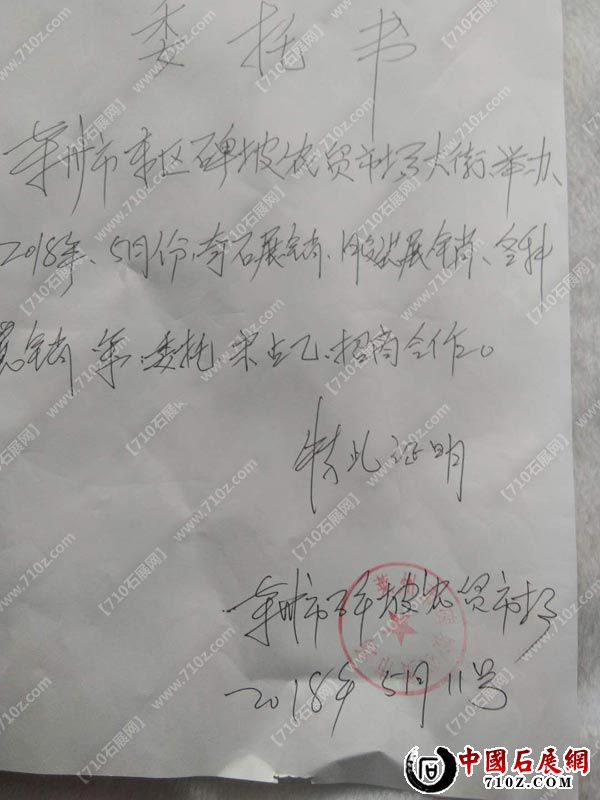 委托书
州市东区碑坡农贸市场大街举办、
2018年、5月份、奇石展销、服装展销、各种
展销 等、委托 宋占乙、招商合作。
特此证明
州市 坡农贸市场
2018年 5月11号
中國石展網
710Z.COM
【710石展网】
www.710z.com